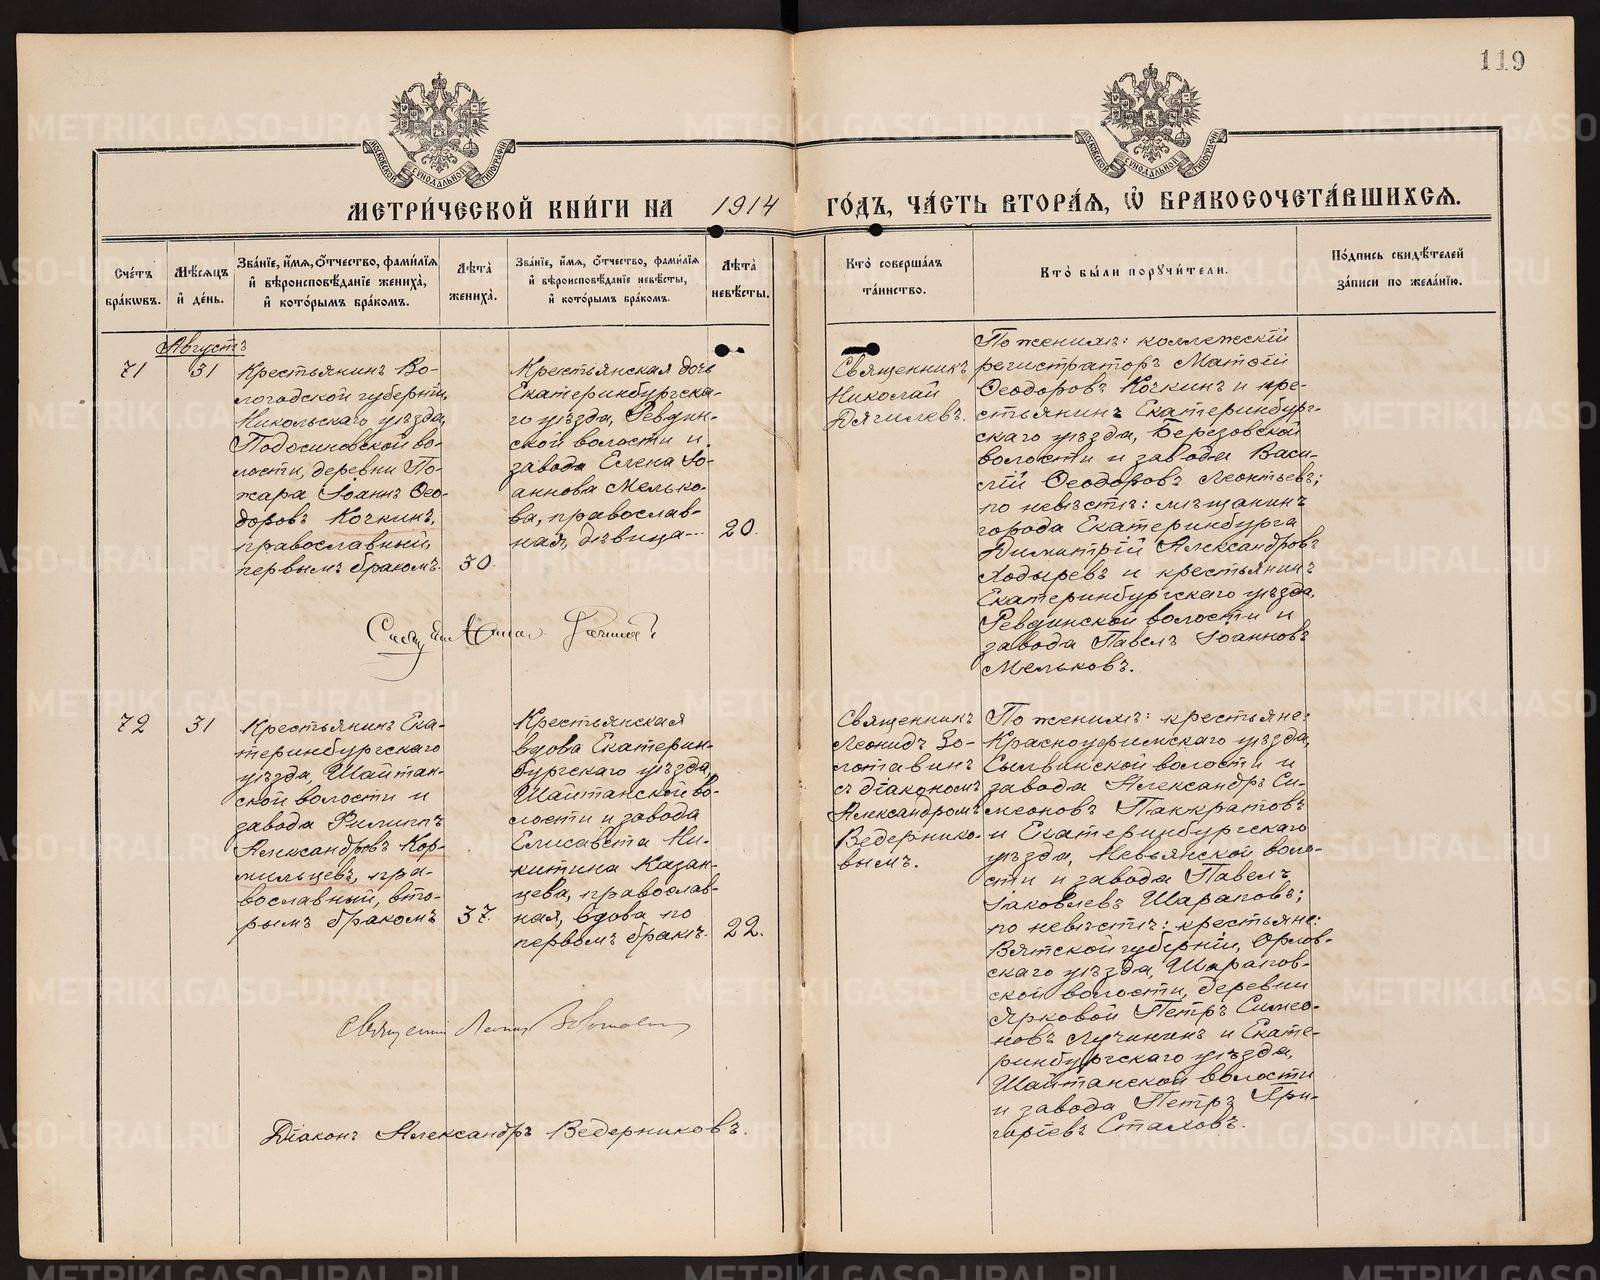 119
МОСКОВСКОЙ СѴНОДАЛЬНОЙ ТИПОГРАФІИ
МОСКОВСКОЙ СѴНОДАЛЬНОЙ ТИПОГРАФІИ
МЕТРИ́ЧЕСКОЙ КНИ́ГИ НА 1914 ГО́ДЪ, ЧА́СТЬ ВТОРА́Ѧ, Ѽ БРАКОСОЧЕТА́ВШИХСѦ.
Сче́тъ
бра́кѡвъ.
Мѣ́сѧцъ
и҆ де́нь.
Зва́нїе, и҆́мѧ, ѻ҆́тчество, фами́лїѧ
и҆ вѣроисповѣ́данїе жениха̀,
и҆ кото́рымъ бра́комъ.
Лѣ́та
жениха̀.
Зва́нїе, и҆́мѧ, ѻ҆́тчество, фами́лїѧ
и҆ вѣроисповѣ́данїе невѣ́сты,
и҆ кото́рымъ бра́комъ.
Лѣ́та
невѣ́сты.
Кто̀ соверша́лъ
та́инство.
Кто̀ бы́ли порꙋчи́тели.
По́дпись свидѣ́телей
за́писи по жела́нїю.
Августъ
71
31
Крестьянинъ Во-
логодской губерніи,
Никольскаго уѣзда,
Подосиновской во-
лости, деревни По-
жара Іоаннъ Ѳео-
доровъ Кочкинъ,
православный,
первымъ бракомъ.
30.
Крестьянская дочь
Екатеринбургска-
го уѣзда, Ревдин-
ской волости и
завода Елена Іо-
аннова Мелько-
ва, православ-
ная, дѣвица
20.
Священникъ
Николай
Дягилевъ.
По женихѣ: коллежскій
регистраторъ Матѳій
Ѳеодоровъ Кочкинъ и кре-
стьянинъ Екатеринбург-
скаго уѣзда, Березовской
волости и завода Васи-
лій Ѳеодоровъ Леонтьевъ;
по невѣстѣ: мѣщанинъ
города Екатеринбурга
Димитрій Александровъ
Ходыревъ и крестьянинъ
Екатеринбургскаго уѣзда,
Ревдинской волости и
завода Павелъ Іоанновъ
Мельковъ.
72
31
Крестьянинъ Ека-
теринбургскаго
уѣзда, Шайтан-
ской волости и
завода Филиппъ
Александровъ Кор-
мильцевъ, пра-
вославный, вто-
рымъ бракомъ
37.
Крестьянская
вдова Екатерин-
бургскаго уѣзда,
Шайтанской во-
лости и завода
Елисавета Ни-
китина Казан-
цева, православ-
ная, вдова по
первомъ бракѣ.
22.
Священникъ
Леонидъ Зо-
лотавинъ
съ діакономъ
Александромъ
Ведернико-
вымъ.
По женихѣ: крестьяне:
Красноуфимскаго уѣзда,
Сылвинской волости и
завода Александръ Си-
меоновъ Панкратовъ
и Екатеринбургскаго
уѣзда, Невьянской воло-
сти и завода Павелъ
Іаковлевъ Шараповъ;
по невѣстѣ: крестьяне:
Вятской губерніи, Орлов-
скаго уѣзда, Шарапов-
ской волости, деревни
Ярковой Петръ Симео-
новъ Лучининъ и Екате-
ринбургскаго уѣзда,
Шайтанской волости
и завода Петръ Гри-
горіевъ Стаховъ.
Священникъ Леонидъ Золотавинъ
Діаконъ Александръ Ведерниковъ.